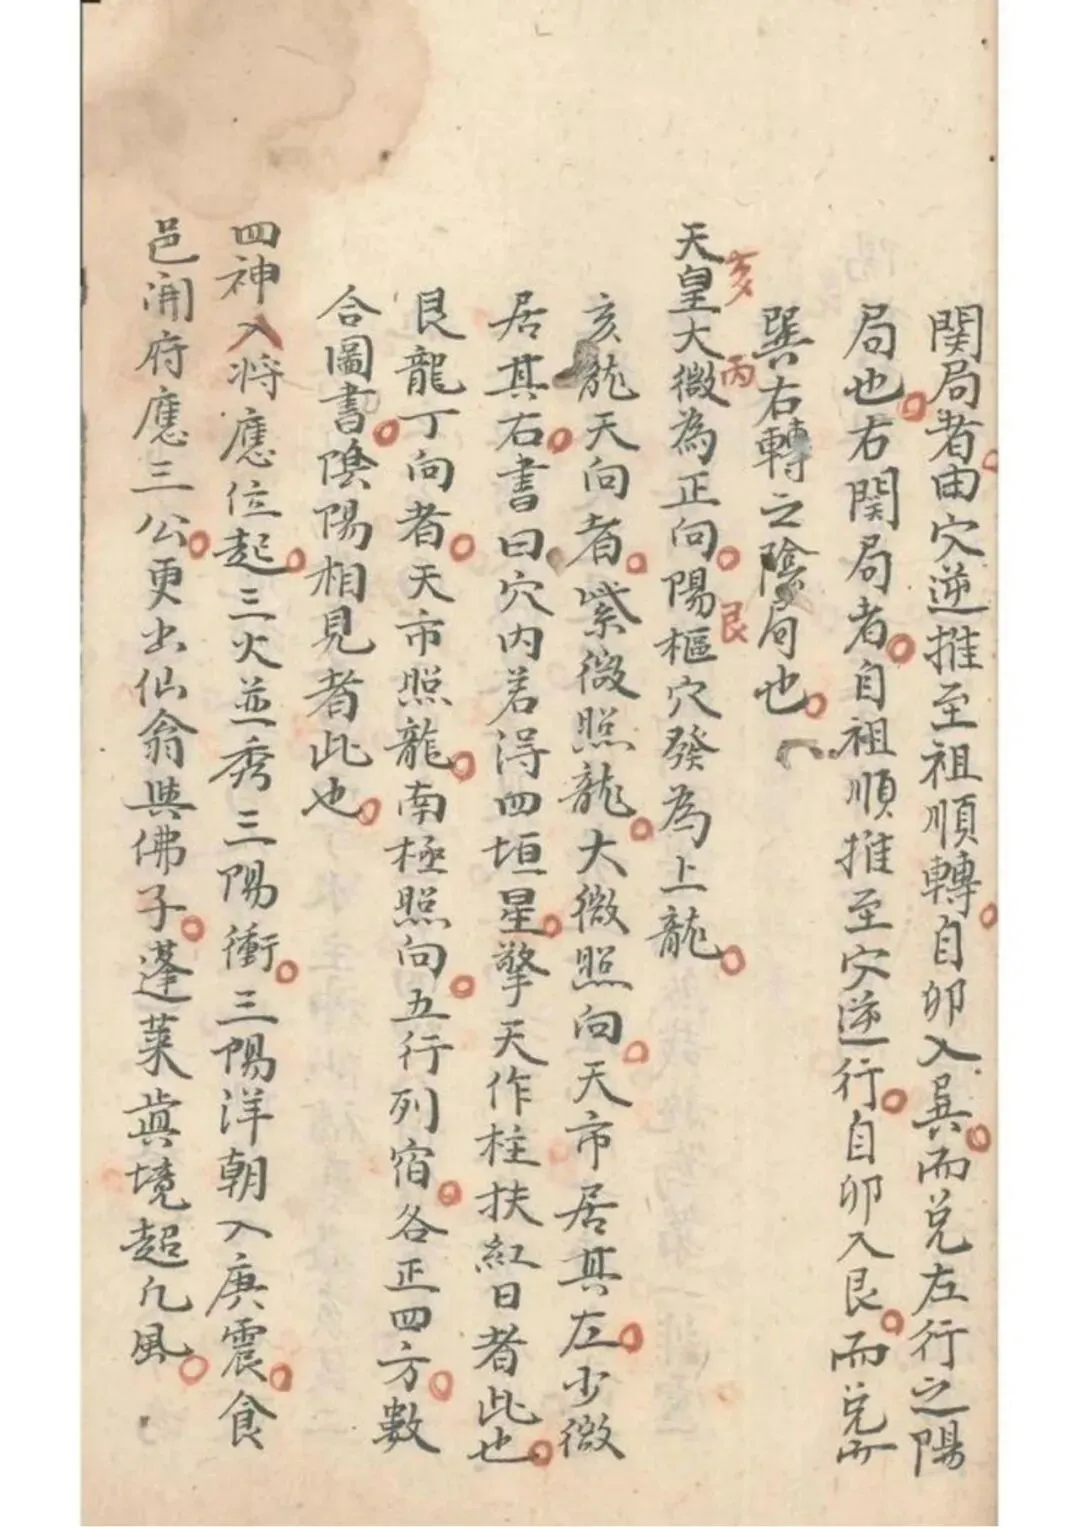 関局者由穴逆推至祖順轉自卯入巽而兌左行之陽
局也右関局者自祖順推至穴逆行自卯入艮而兌而
巽右轉之陰局也
天皇大微為正向陽樞穴發為上龍
亥
丙
艮
亥龍天向者紫微照龍大微照向天市居其左少微
居其右書曰穴内若得四垣星擎天作柱扶紅日者此也
艮龍丁向者天市照龍南極照向五行列宿各正四方數
合圖書陰陽相見者此也
四神入将應位起三火並秀三陽衝三陽洋朝入庚震食
邑開府應三公更出仙翁與佛子蓬萊真境超凢風